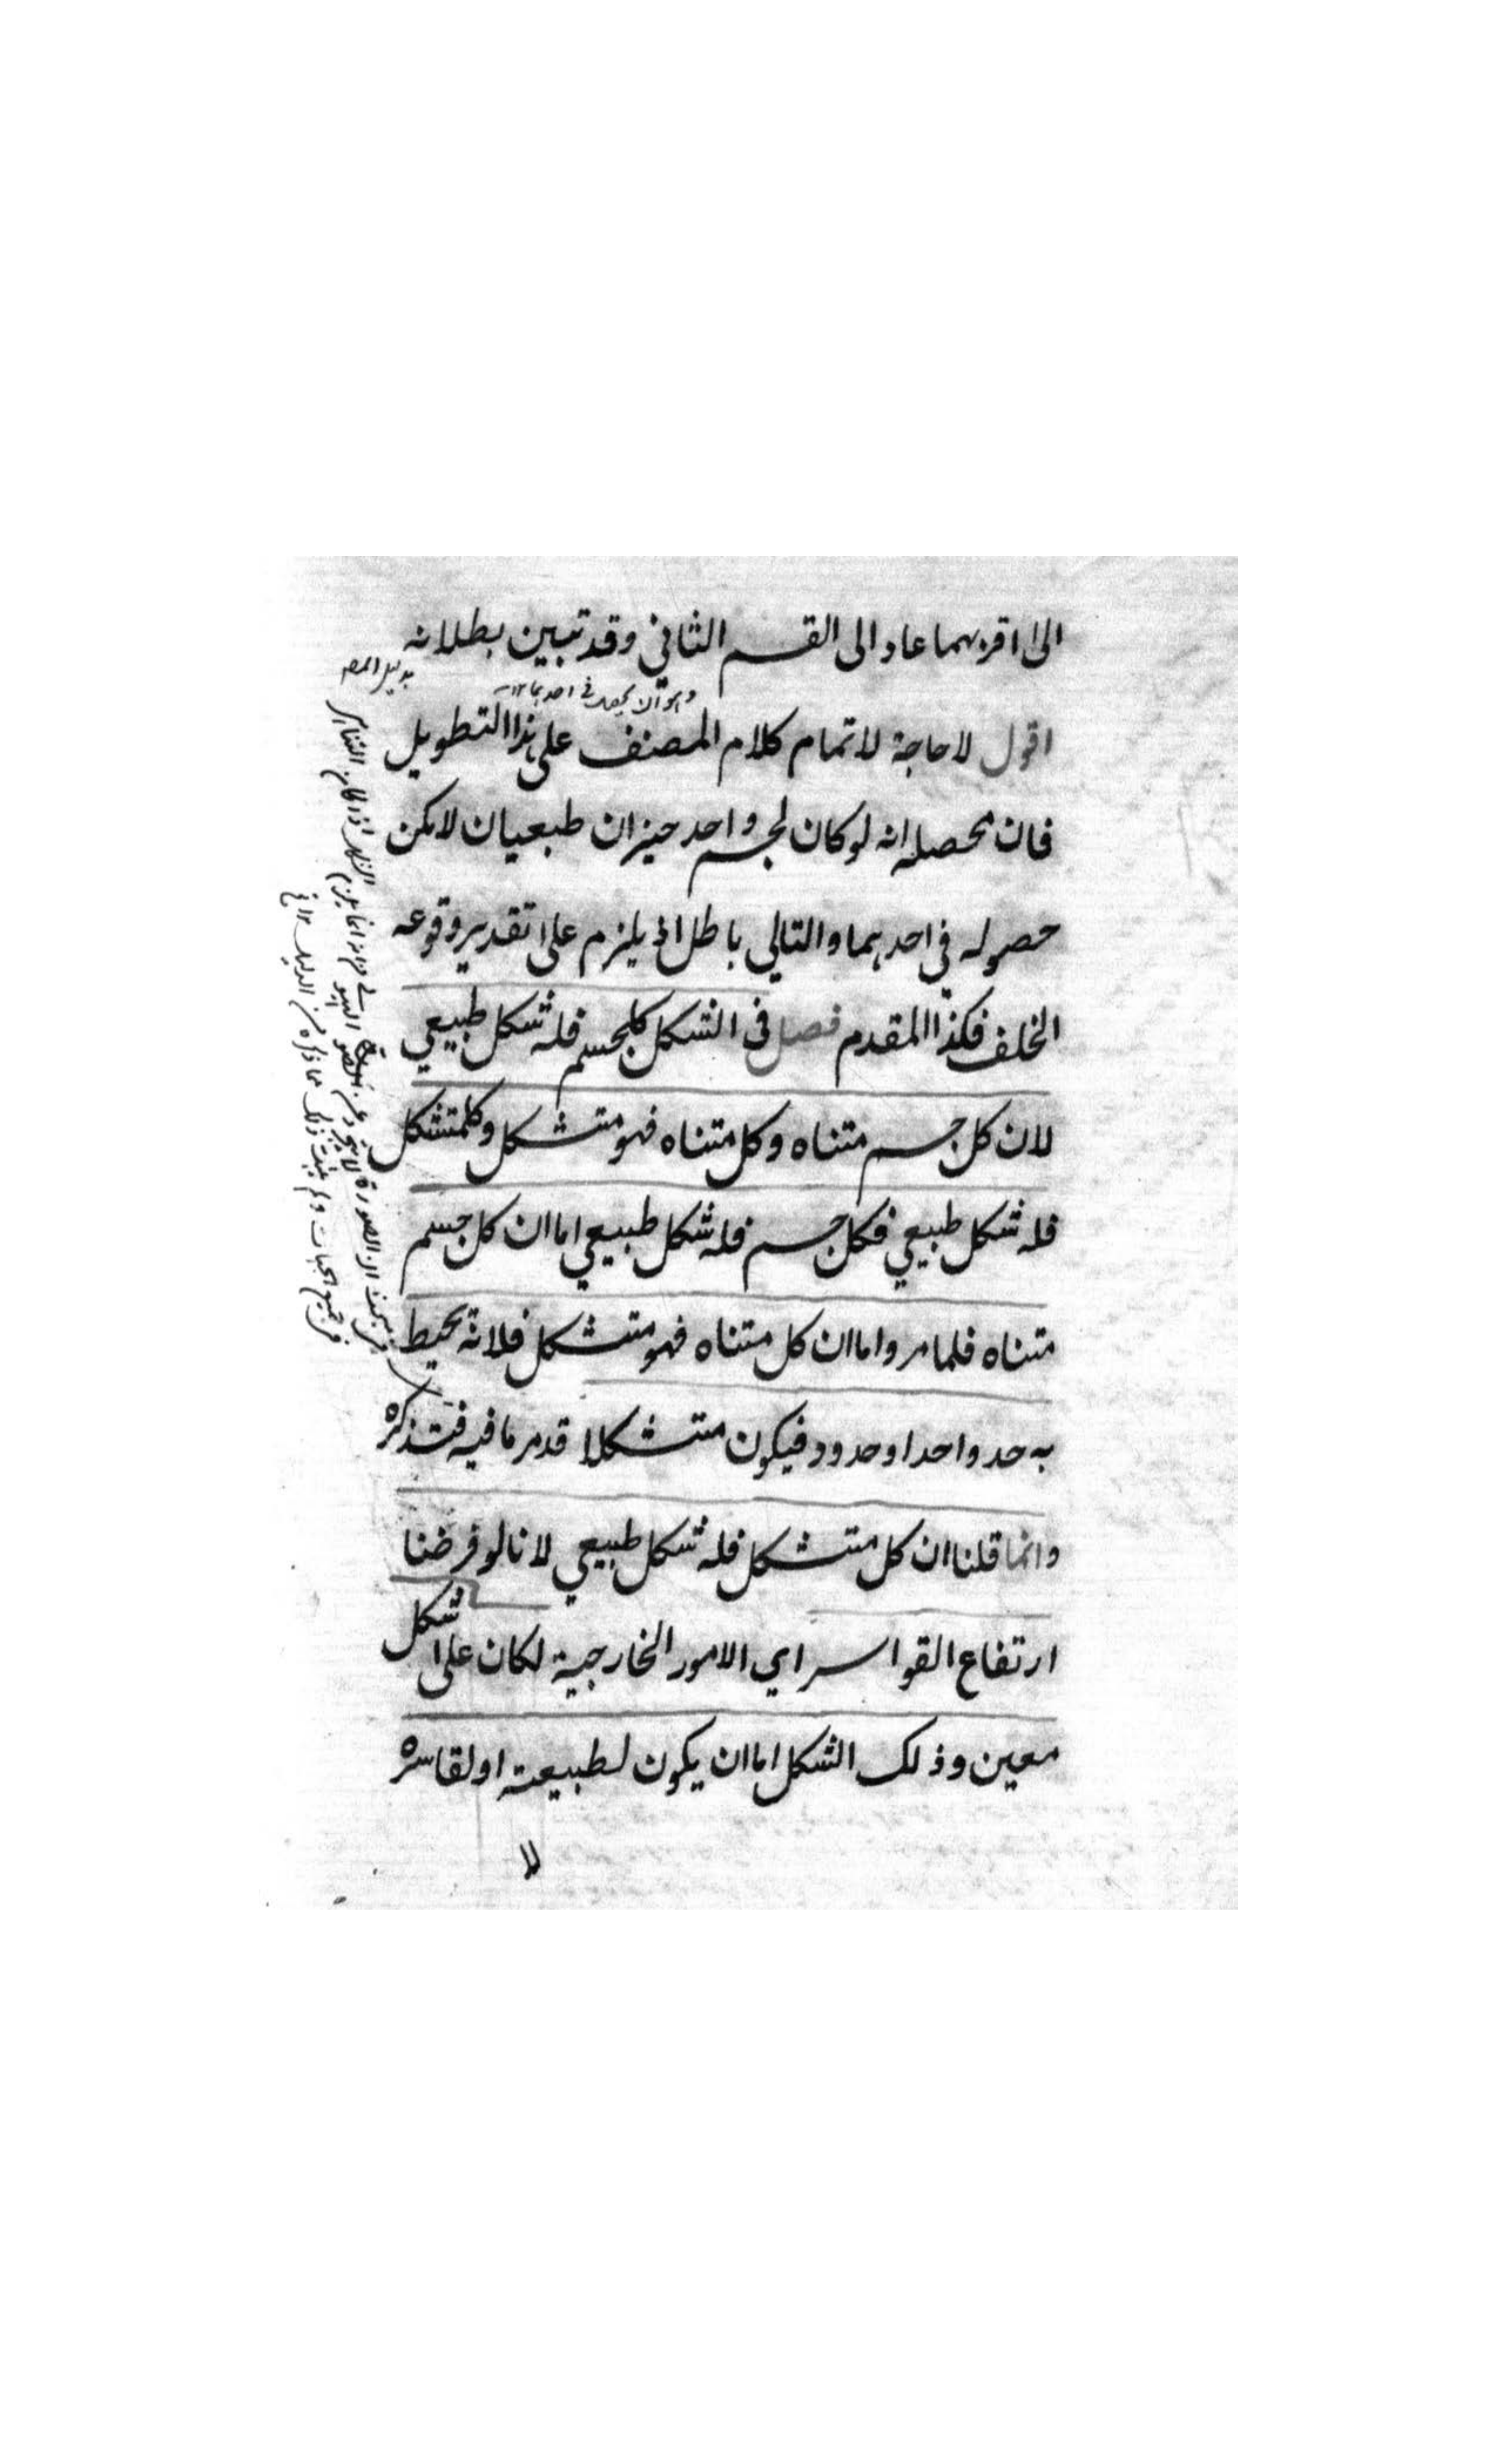 الى اقربهما عاد الى القسم الثاني وقد تبين بطلانه
بدليل المص
وهو ان يحصل في احدهما ١٢
اقول لا حاجة لاتمام كلام المصنف على هذا التطويل
فان محصله انه لو كان لجسم واحد حيزان طبعيان لامكن
حصوله في احدهما والتالي باطل اذ يلزم على تقدير وقوعه
الخلف فكذا المقدم فصل في الشكل كل جسم فله شكل طبيعي
لان كل جسم متناه وكل متناه فهو متشكل وكل متشكل
فله شكل طبيعي فكل جسم فله شكل طبيعي اما ان كل جسم
متناه فلما مر واما ان كل متناه فهو متشكل فلانه يحيط
به حد واحد او حدود فيكون متشكلا قد مر ما فيه فتذكره
وانما قلنا ان كل متشكل فله شكل طبيعي لانا لو فرضنا
ارتفاع القواسر اي الامور الخارجية لكان على شكل
معين وذلك الشكل اما ان يكون لطبيعته او لقاسره
لا